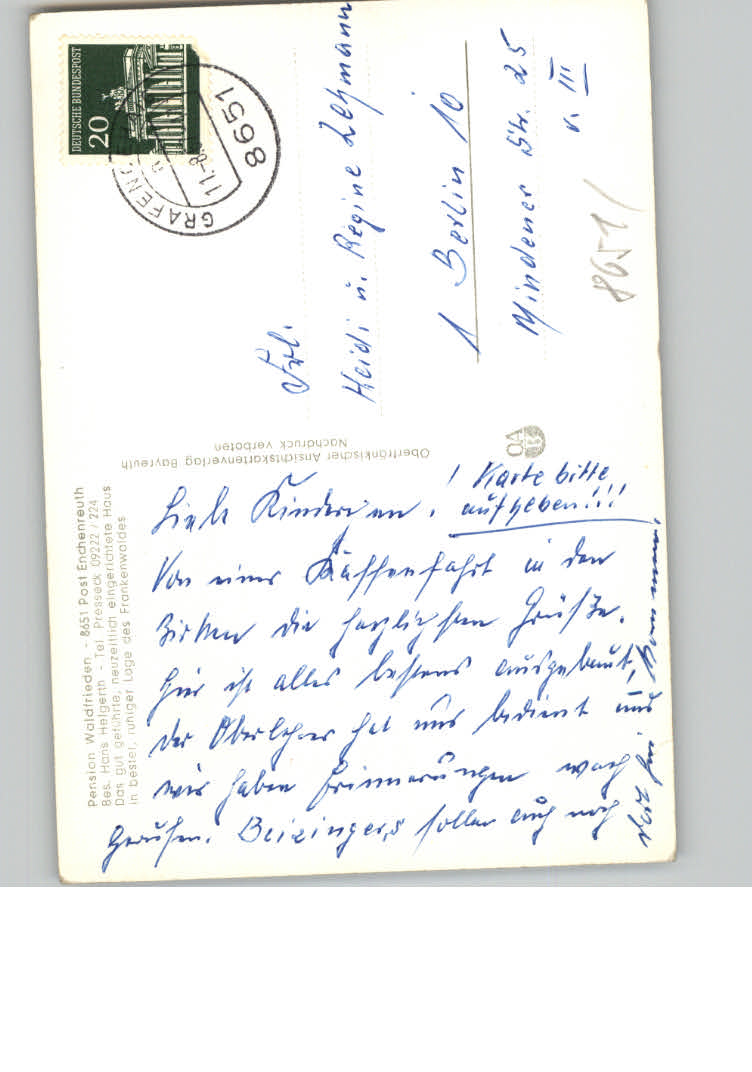 Pension Waldfrieden - 8651 Post Enchenreuth
Bes. Hans Helgerth - Tel. Presseck 09222 / 224
Das gut geführte, neuzeitlich eingerichtete Haus
in bester, ruhiger Lage des Frankenwaldes
Oberfränkischer Ansichtskartenverlag Bayreuth
Nachdruck verboten
OA
DEUTSCHE BUNDESPOST
20
8651
11.-8.
GRAFENGE
Frl.
Heidi u. Regine Lehmann
1 Berlin 10
Mindener Str. 25
v. III
8651/
! Karte bitte
aufheben!!!
Liebe Kinder
Von einer Kaffeefahrt in den
die herzlichsten Grüße.
Hier ist alles bestens ausgebaut,
der Oberlehrer hat uns bedient und
wir haben Erinnerungen wach
gerufen. Beizinger,s sollen auch noch
kommen.